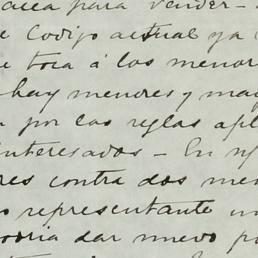 para vender -
Codigo actual ya
toca á los menor
hay menores y ma
por las reglas apl
interesados - En
res contra dos me
representante
dar nuevo p